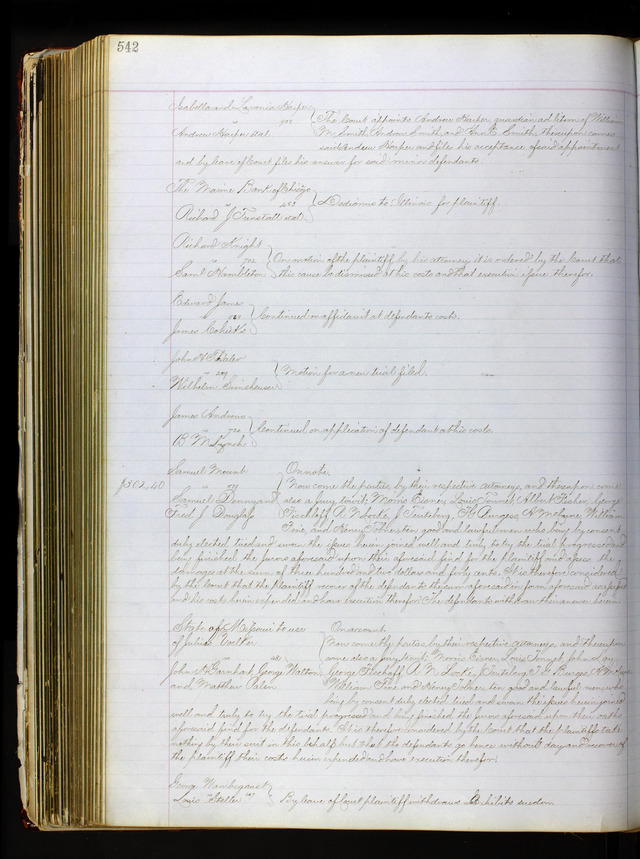 542
Isabella and Lavonia Harper
The Court appoints Andrew Harper guardian ad litem of William
Andrew Harper et al
M Smith, Andrew Smith and Ann E Smith, thereupon comes
said Andrew Harper and files his acceptance of said appointment
and by leave of Court files his answer for said minor defendants.
The Marine Bank of Chicago
vs 452
Dedimus to Illinois for plaintiff.
Richard J Tunstall et al
Richard Knight
vs 702
On motion of the plaintiff by his attorney it is ordered by the Court that
Saml Hambleton
this cause be dismissed at his costs and that execution issue therefor.
Edward James
Continued on affidavit at defendants costs.
James
John H
Motion for a new trial filed.
Wilhelm
James Andrews
vs 720
Continued on application of defendant at his costs.
B M Lynch
Samuel Mount
On note.
$502.40
Now come the parties by their respective attorneys, and thereupon come
Samuel Dunn and
also a jury to wit: Morris Eisner, Louis Albert Fisher, George
Fred J Douglass
A N Locke, J H Burgess, A McLane, William
Fine, and Henry ten good and lawful men who being by consent
duly elected tried and sworn the issues herein joined well and truly to try the trial progressed and
being finished the jurors aforesaid upon their oaths aforesaid find for the plaintiff and assess the
damages at the sum of five hundred and two dollars and forty cents. It is therefore considered
by the Court that the plaintiff recover of the defendants the damages aforesaid in form aforesaid assessed
and his costs herein expended and have execution therefor. The defendants withdraw their answer herein
State of Missouri to use
On account.
of Julius
Now come the parties by their respective attorneys, and thereupon
come also a jury to wit: Morris Eisner, Louis John
John A George Watson
George A N Locke, J H Burgess, A McLane
and Matthew
William Fine and Henry ten good and lawful men who
being by consent duly elected tried and sworn the issues herein joined
well and truly to try the trial progressed and being finished the jurors aforesaid upon their oaths
aforesaid find for the defendants. It is therefore considered by the Court that the plaintiffs take
nothing by their suit in this behalf but that the defendants go hence without day and recover of
the plaintiff their costs herein expended and have execution therefor.
George
Louis Steller
By leave of Court plaintiff withdraws Exhibits sued on.